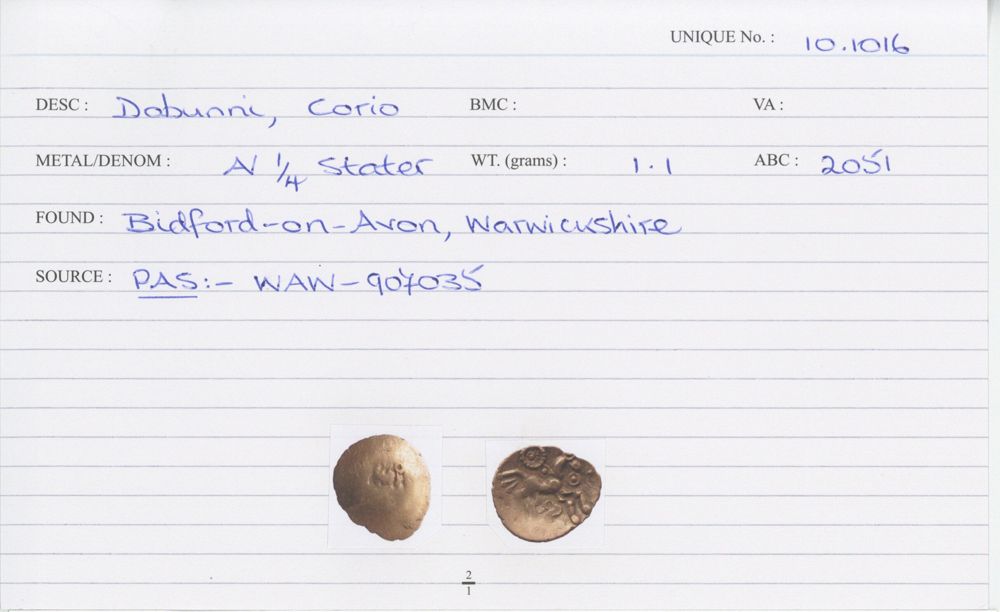 UNIQUE No. : 10.1016
DESC : Dobunni, Corio BMC : VA :
METAL/DENOM : AV 1/4 Stater WT. (grams) : 1.1 ABC : 2051
FOUND : Bidford-on-Avon, Warwickshire
SOURCE : PAS:- WAW-907035
2/1